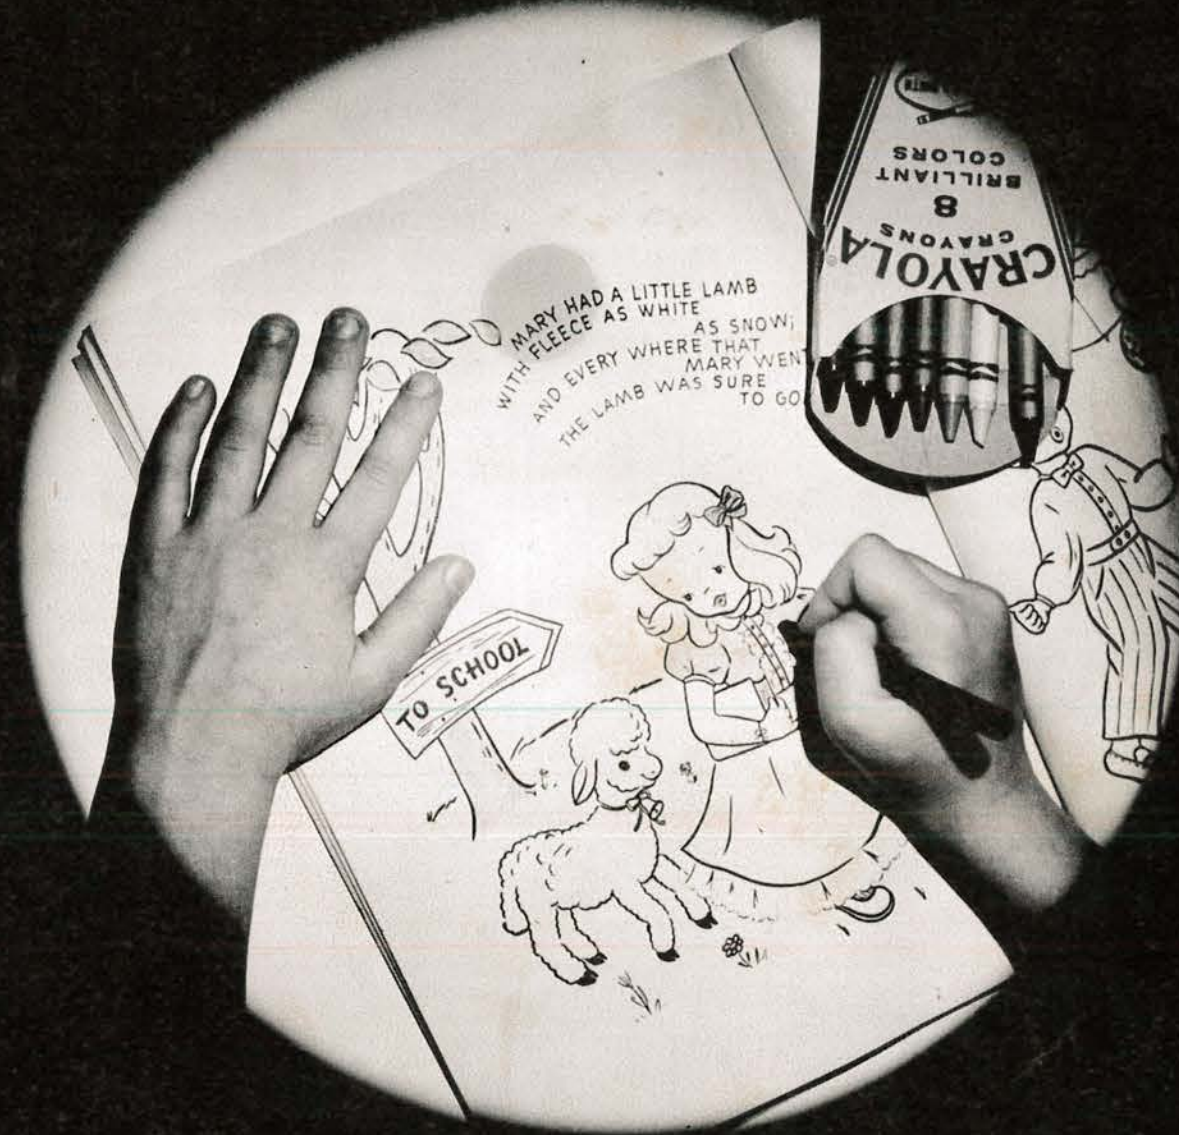 MARY HAD A LITTLE LAMB
WITH FLEECE AS WHITE
AS SNOW;
AND EVERY WHERE THAT
MARY WENT
THE LAMB WAS SURE
TO GO
TO SCHOOL
CRAYOLA®
CRAYONS
8
BRILLIANT
COLORS